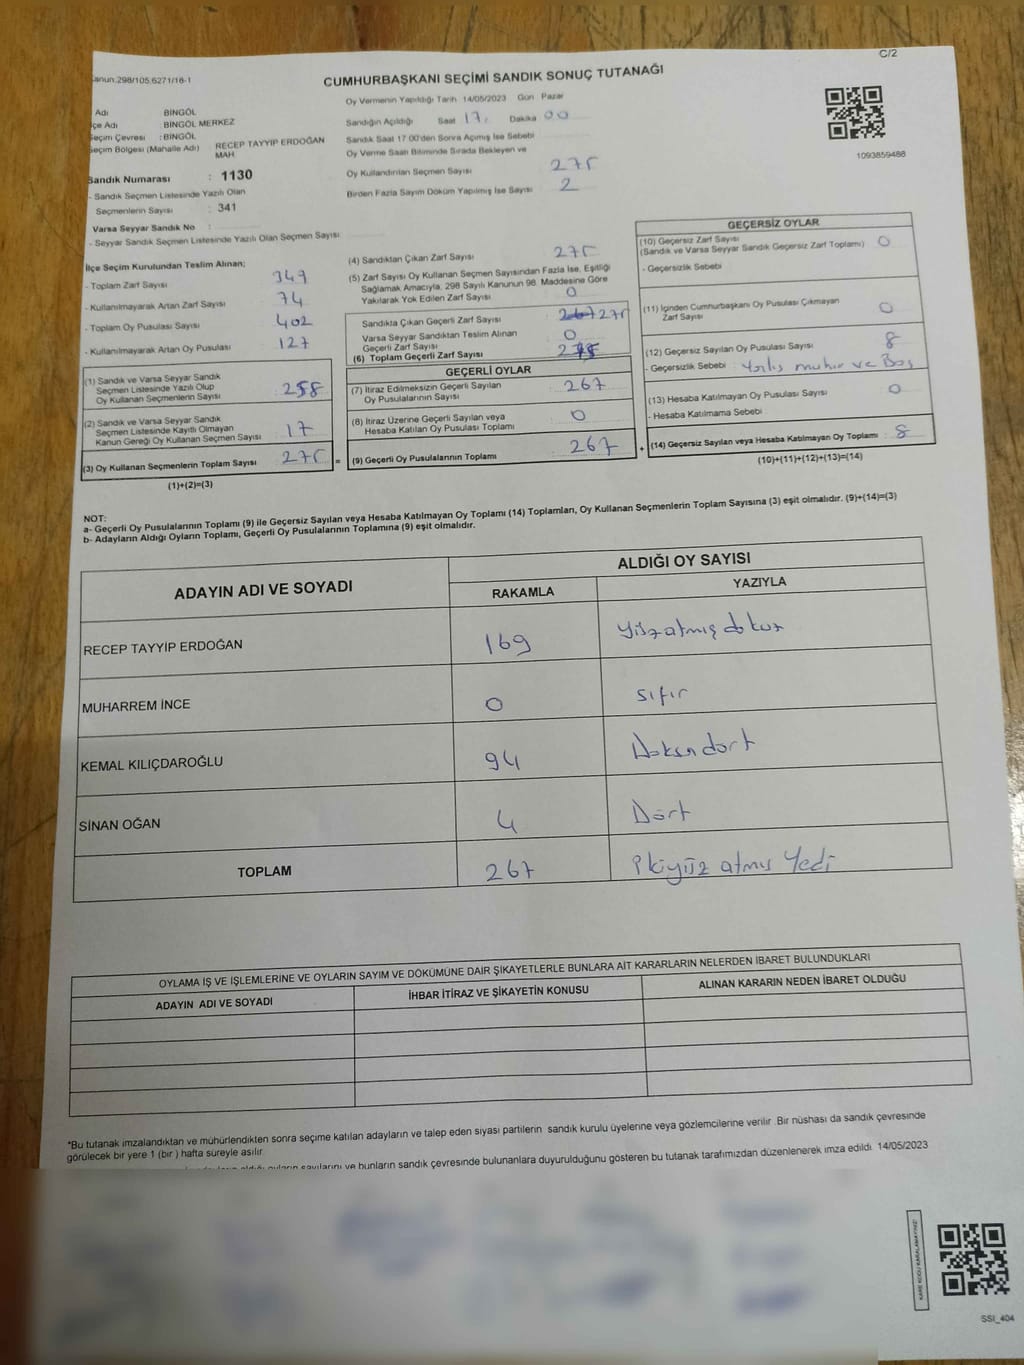 C/2
Kanun:298/105.6271/16-1
CUMHURBAŞKANI SEÇİMİ SANDIK SONUÇ TUTANAĞI
Adı BİNGÖL
İlçe Adı BİNGÖL MERKEZ
Seçim Çevresi : BİNGÖL
Seçim Bölgesi (Mahalle Adı) RECEP TAYYIP ERDOĞAN
MAH
Sandık Numarası : 1130
- Sandık Seçmen Listesinde Yazılı Olan
Seçmenlerin Sayısı : 341
Varsa Seyyar Sandık No :
- Seyyar Sandık Seçmen Listesinde Yazılı Olan Seçmen Sayısı
Oy Vermenin Yapıldığı Tarih 14/05/2023 Gün Pazar
Sandığın Açıldığı Saat 17: Dakika 00
Sandık Saat 17:00'den Sonra Açımış İse Sebebi
Oy Verme Saati Bitiminde Sırada Bekleyen ve
Oy Kullandırılan Seçmen Sayısı 275
Birden Fazla Sayım Döküm Yapılmış İse Sayısı 2
1093859488
İlçe Seçim Kurulundan Teslim Alınan;
- Toplam Zarf Sayısı 349
- Kullanılmayarak Artan Zarf Sayısı 74
- Toplam Oy Pusulası Sayısı 402
- Kullanılmayarak Artan Oy Pusulası 127
(1) Sandık ve Varsa Seyyar Sandık
Seçmen Listesinde Yazılı Olup
Oy Kullanan Seçmenlerin Sayısı 258
(2) Sandık ve Varsa Seyyar Sandık
Seçmen Listesinde Kayıtlı Olmayan
Kanun Gereği Oy Kullanan Seçmen Sayısı 17
(3) Oy Kullanan Seçmenlerin Toplam Sayısı 275 =
(1)+(2)=(3)
(4) Sandıktan Çıkan Zarf Sayısı 275
(5) Zarf Sayısı Oy Kullanan Seçmen Sayısından Fazla İse, Eşitliği
Sağlamak Amacıyla, 298 Sayılı Kanunun 98. Maddesine Göre
Yakılarak Yok Edilen Zarf Sayısı 0
Sandıkta Çıkan Geçerli Zarf Sayısı 267 275
Varsa Seyyar Sandıktan Teslim Alınan
Geçerli Zarf Sayısı 0
(6) Toplam Geçerli Zarf Sayısı
GEÇERLİ OYLAR
(7) İtiraz Edilmeksizin Geçerli Sayılan
Oy Pusulalarının Sayısı 267
(8) İtiraz Üzerine Geçerli Sayılan veya
Hesaba Katılan Oy Pusulası Toplamı 0
(9) Geçerli Oy Pusulalarının Toplamı 267 +
GEÇERSİZ OYLAR
(10) Geçersiz Zarf Sayısı
(Sandık ve Varsa Seyyar Sandık Geçersiz Zarf Toplamı) 0
- Geçersizlik Sebebi
(11) İçinden Cumhurbaşkanı Oy Pusulası Çıkmayan
Zarf Sayısı 0
(12) Geçersiz Sayılan Oy Pusulası Sayısı 8
- Geçersizlik Sebebi : Yanlış muhur ve Boş
(13) Hesaba Katılmayan Oy Pusulası Sayısı 0
- Hesaba Katılmama Sebebi
(14) Geçersiz Sayılan veya Hesaba Katılmayan Oy Toplamı : 8
(10)+(11)+(12)+(13)=(14)
NOT:
a- Geçerli Oy Pusulalarının Toplamı (9) ile Geçersiz Sayılan veya Hesaba Katılmayan Oy Toplamı (14) Toplamları, Oy Kullanan Seçmenlerin Toplam Sayısına (3) eşit olmalıdır. (9)+(14)=(3)
b- Adayların Aldığı Oyların Toplamı, Geçerli Oy Pusulalarının Toplamına (9) eşit olmalıdır.
ADAYIN ADI VE SOYADI ALDIĞI OY SAYISI
RAKAMLA YAZIYLA
RECEP TAYYİP ERDOĞAN 169 yüzatmış dokuz
MUHARREM İNCE 0 sıfır
KEMAL KILIÇDAROĞLU 94 Doksandört
SİNAN OĞAN 4 Dört
TOPLAM 267 ikiyüz atmış Yedi
OYLAMA İŞ VE İŞLEMLERİNE VE OYLARIN SAYIM VE DÖKÜMÜNE DAİR ŞİKAYETLERLE BUNLARA AİT KARARLARIN NELERDEN İBARET BULUNDUKLARI
ADAYIN ADI VE SOYADI İHBAR İTİRAZ VE ŞİKAYETİN KONUSU ALINAN KARARIN NEDEN İBARET OLDUĞU
*Bu tutanak imzalandıktan ve mühürlendikten sonra seçime katılan adayların ve talep eden siyasi partilerin sandık kurulu üyelerine veya gözlemcilerine verilir. Bir nüshası da sandık çevresinde
görülecek bir yere 1 (bir) hafta süreyle asılır.
aldığı oyların sayılarını ve bunların sandık çevresinde bulunanlara duyurulduğunu gösteren bu tutanak tarafımızdan düzenlenerek imza edildi. 14/05/2023
KARE KODU KARALAMAYINIZ!
SSI_404